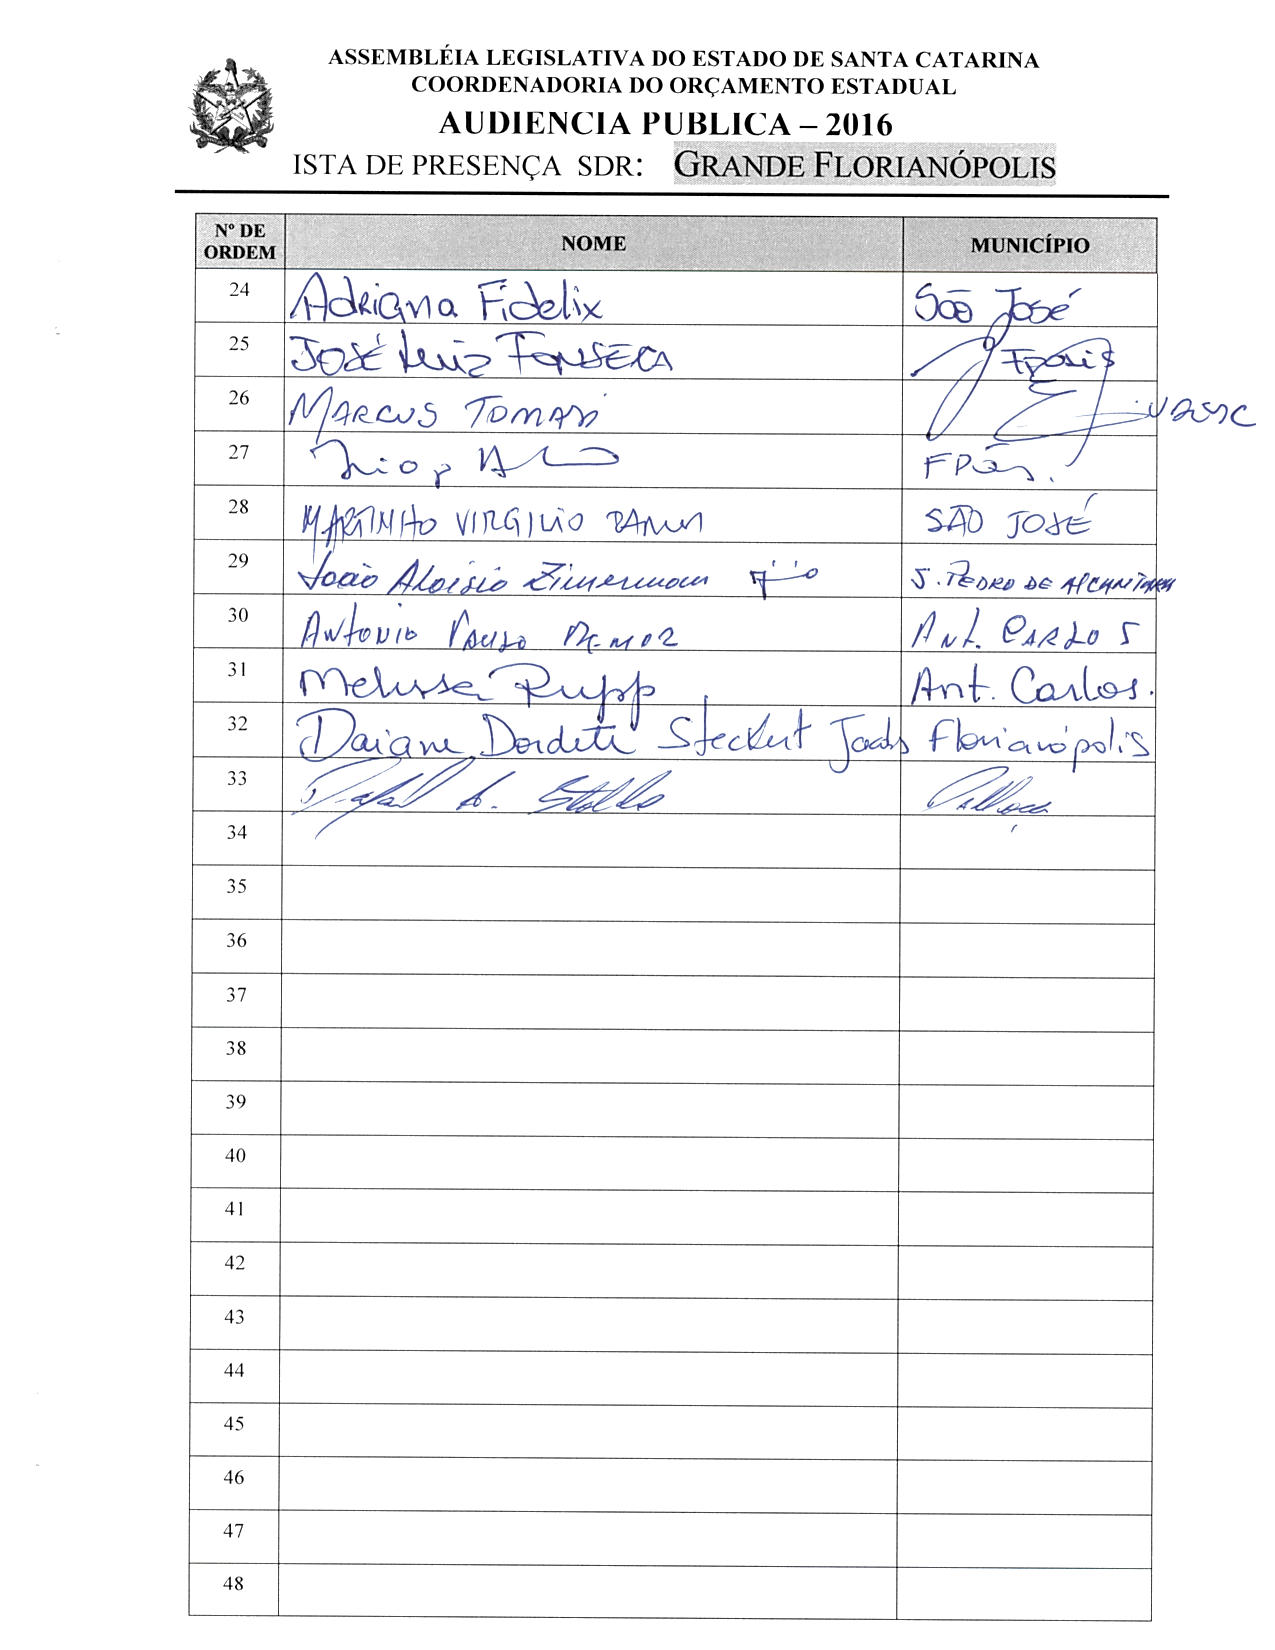 ASSEMBLÉIA LEGISLATIVA DO ESTADO DE SANTA CATARINA
COORDENADORIA DO ORÇAMENTO ESTADUAL
AUDIENCIA PUBLICA – 2016
ISTA DE PRESENÇA SDR: GRANDE FLORIANÓPOLIS
Nº DE ORDEM NOME MUNICÍPIO
24 Adriana Fidelix São José
25 JOSÉ Luiz FONSECA Fpolis
26 MARCUS TOMASI UDESC
27
28 MARTINHO VIRGILIO SÃO JOSÉ
29 João Aloisio Zimermann S. PEDRO DE ALCANTARA
30 ANTONIO ANT. CARLOS
31 Melissa Rupp Ant. Carlos.
32 Daiane Steckert Florianópolis
33 Rafael Palhoça
34
35
36
37
38
39
40
41
42
43
44
45
46
47
48